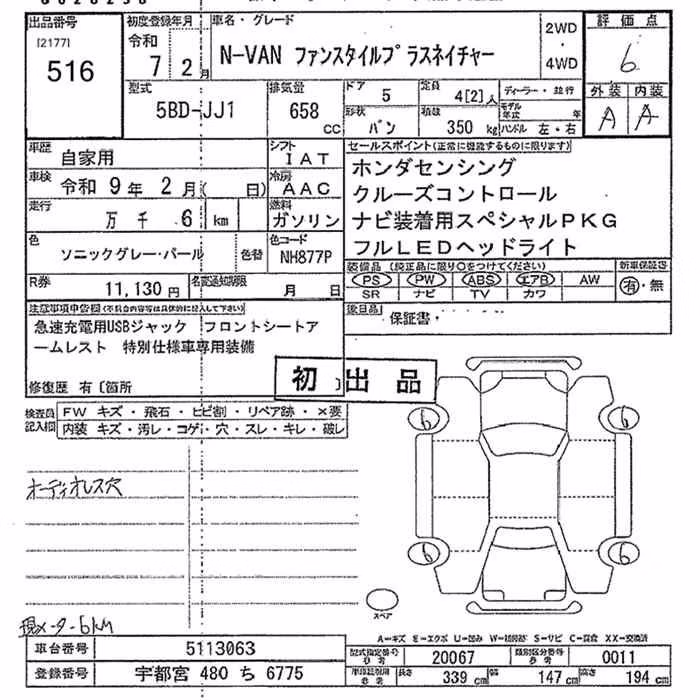 出品番号
[2177]
516
初度登録年月
令和
7年 2月
車名・グレード
N-VAN ファンスタイルプラスネイチャー
2WD
・
4WD
評価点
6
外装 内装
A A
型式
5BD-JJ1
排気量
658
CC
ドア
5
定員
4[2]人
形状
バン
積載
350 kg
ディーラー・並行
モデル年式 年
ハンドル 左・右
車歴
自家用
シフト
IAT
車検
令和 9年 2月( 日)
冷房
AAC
走行
万 千 6 km
燃料
ガソリン
色
ソニックグレー・パール
色替
色コード
NH877P
R券
11,130円
名変通知期限
月 日
セールスポイント(正常に機能するものに限ります)
ホンダセンシング
クルーズコントロール
ナビ装着用スペシャルPKG
フルLEDヘッドライト
装備品(純正品に限り○をつけてください)
PS PW ABS エアB AW
SR ナビ TV カワ
新車保証書
有・無
後日品
保証書・
注意事項申告欄(不具合内容等は具体的に記入して下さい)
急速充電用USBジャック フロントシートア
ームレスト 特別仕様車専用装備
修復歴 有〔箇所 〕
初出品
検査員
記入欄
FW キズ・飛石・ヒビ割・リペア跡・×要
内装 キズ・汚レ・コゲ・穴・スレ・キレ・破レ
オーディオレス穴
現メーター6km
6
6
6
6
スペア
A=キズ E=エクボ U=凹み W=補修跡 S=サビ C=腐食 XX=交換済
車台番号
5113063
登録番号
宇都宮 480 ち 6775
型式指定番号
参考
20067
類別区分番号
参考
0011
車検証期用
参考
長さ
339 cm
幅
147 cm
高さ
194 cm